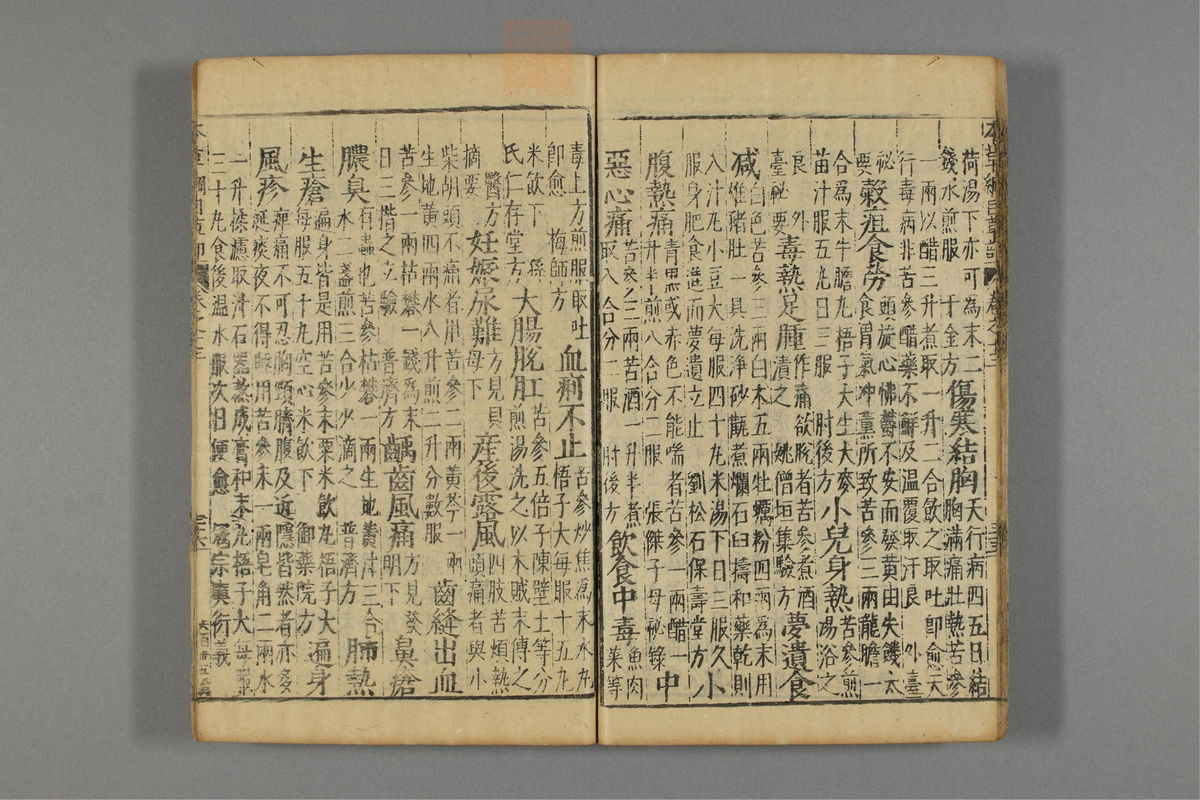 荷湯下亦可為末二錢水煎服 千金方 傷寒結胸 天行病四五日結胸滿痛壯熱苦參
一兩以醋三升煮取一升二合飲之取吐即愈天行毒病非苦參醋藥不解及温覆取汗良 外臺
祕要 穀疸食勞 頭旋心怫鬱不安而發黃由失饑大食胃氣冲熏所致苦參三兩龍膽一
合爲末牛膽丸梧子大生大麥苗汁服五丸日三服 肘後方 小兒身熱 苦參煎湯浴之
良 外臺祕要 毒熱足腫 作痛欲脫者苦參煮酒漬之 姚僧垣集驗方 夢遺食
減 白色苦參三兩白术五兩牡蠣粉四兩為末用雄豬肚一具洗淨砂瓶煮爛石臼搗和藥乾則
入汁丸小豆大每服四十丸米湯下日三服久服身肥食進而夢遺立止 劉松石保壽堂方 小
腹熱痛 青黑或赤色不能喘者苦參一兩醋一升半煎八合分二服 張傑子母秘錄 中
惡心痛 苦參三兩苦酒一升半煮取八合分二服 肘後方 飲食中毒 魚肉菜等
毒上方煎服取吐即愈 梅師方 血痢不止 苦參炒焦爲末水丸梧子大每服十五丸
米飲下 孫氏仁存堂方 大腸脫肛 苦參五倍子陳壁土等分煎湯洗之以木賊末傅之
醫方摘要 妊娠尿難 方見貝母下 產後露風 四肢苦煩熱頭痛者與小
柴胡頭不痛者用苦參二兩黃芩一兩生地黃四兩水八升煎二升分數服 齒縫出血
苦參一兩枯礬一錢為末日三揩之立驗 普濟方 齲齒風痛 方見發明下 鼻瘡
膿臭 有蟲也苦參枯礬一兩生地黃汁三合水二盞煎三合少少滴之 普濟方 肺熱
生瘡 遍身皆是用苦參末粟米飲丸梧子大每服五十丸空心米飲下 御藥院方 遍身
風疹 痺痛不可忍胸頸臍腹及近隱皆然者亦多涎痰夜不得睡用苦參末一兩皂角二兩水
一升揉濾取汁石器熬成膏和末丸梧子大每服三十丸食後温水服次日便愈 寇宗奭衍義